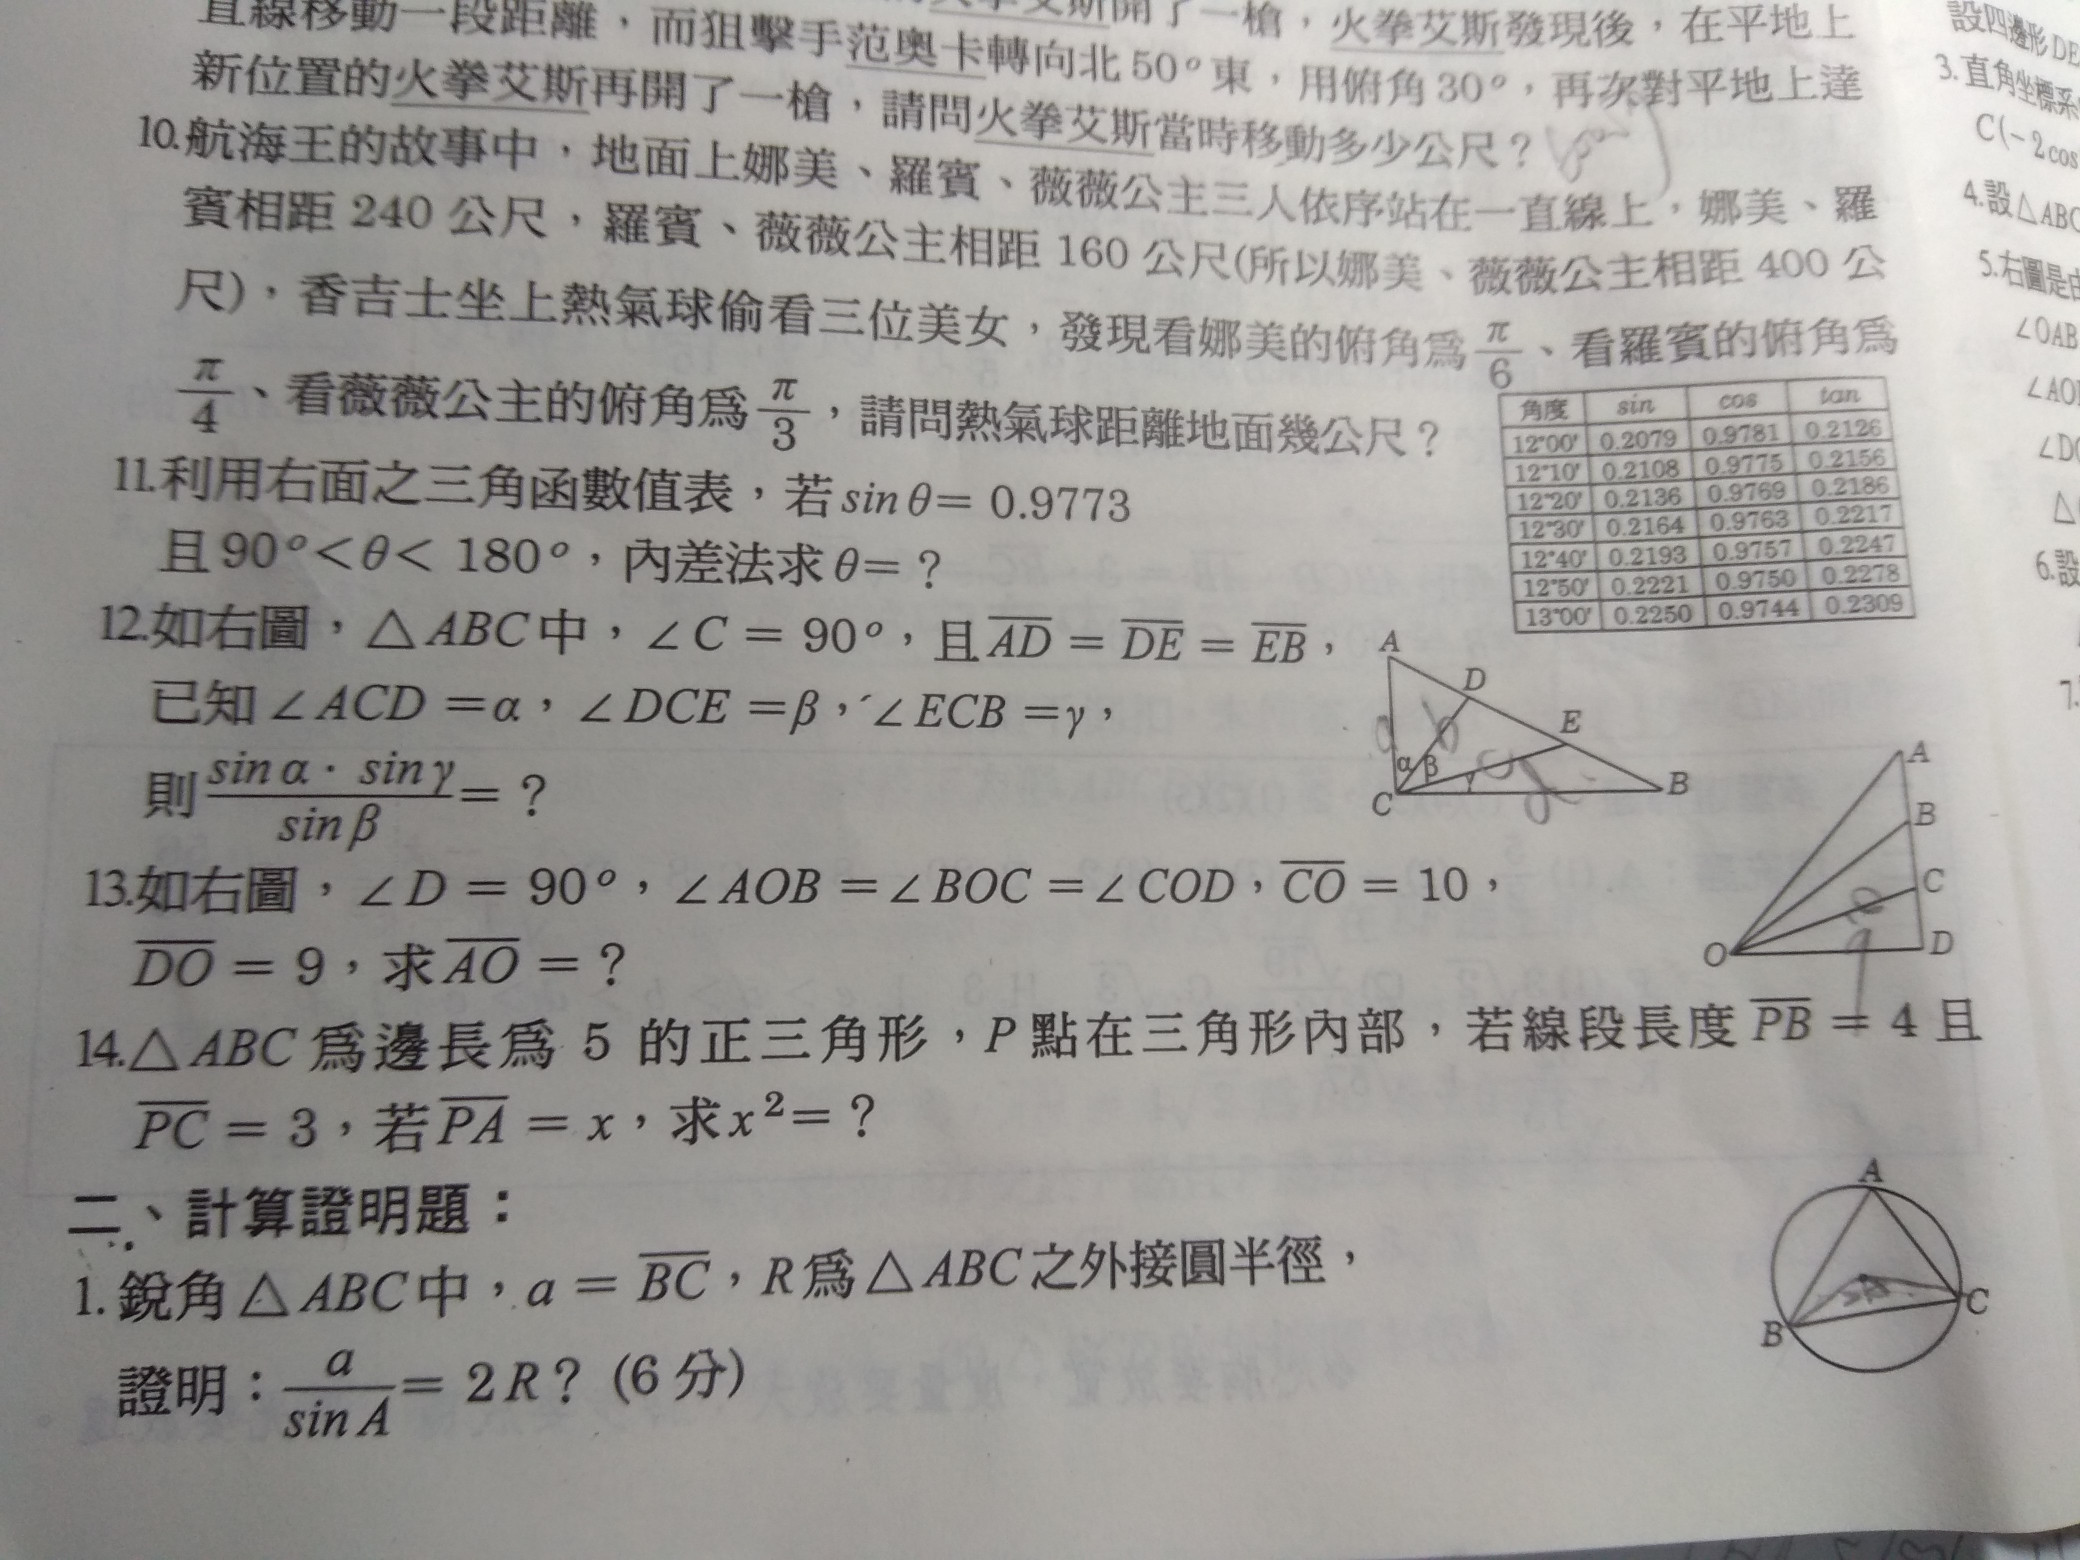 直線移動一段距離，而狙擊手范奧卡轉向北50°東，用俯角30°，再次對平地上達
開了一槍，火拳艾斯發現後，在平地上
新位置的火拳艾斯再開了一槍，請問火拳艾斯當時移動多少公尺？
10.航海王的故事中，地面上娜美、羅賓、薇薇公主三人依序站在一直線上，娜美、羅
賓相距 240 公尺，羅賓、薇薇公主相距 160 公尺(所以娜美、薇薇公主相距 400 公
尺)，香吉士坐上熱氣球偷看三位美女，發現看娜美的俯角為 π/6、看羅賓的俯角為
π/4、看薇薇公主的俯角為 π/3，請問熱氣球距離地面幾公尺？
角度 sin cos tan
12°00' 0.2079 0.9781 0.2126
12°10' 0.2108 0.9775 0.2156
12°20' 0.2136 0.9769 0.2186
12°30' 0.2164 0.9763 0.2217
12°40' 0.2193 0.9757 0.2247
12°50' 0.2221 0.9750 0.2278
13°00' 0.2250 0.9744 0.2309
11.利用右面之三角函數值表，若 sin θ = 0.9773
且 90° < θ < 180°，內差法求 θ = ？
12.如右圖，△ABC 中，∠C = 90°，且 AD = DE = EB，
已知 ∠ACD = α，∠DCE = β，∠ECB = γ，
則 sin α · sin γ / sin β = ？
A
D
E
B
C
α β γ
13.如右圖，∠D = 90°，∠AOB = ∠BOC = ∠COD，CO = 10，
DO = 9，求 AO = ？
A
B
C
O
D
14.△ABC 為邊長為 5 的正三角形，P 點在三角形內部，若線段長度 PB = 4 且
PC = 3，若 PA = x，求 x² = ？
二、計算證明題：
1. 銳角 △ABC 中，a = BC，R 為 △ABC 之外接圓半徑，
證明：a / sin A = 2R？(6 分)
A
B
C
設四邊形 DE
3.直角坐標系
C(-2cos
4.設△ABC
5.右圖是由
∠OAB
∠AO
∠D
△
6.設
7.